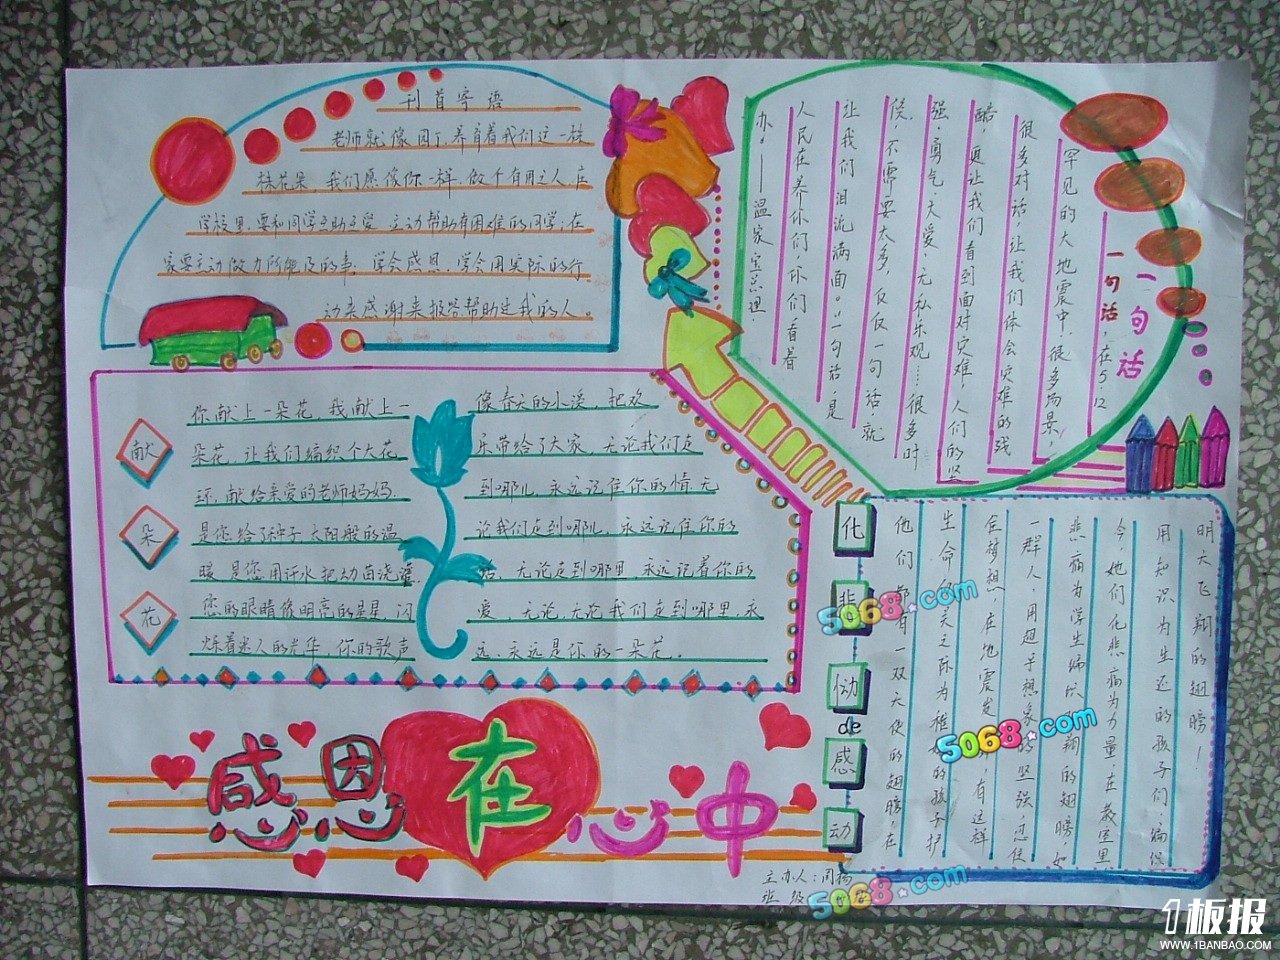 刊首寄语
老师就像园丁,养育着我们这一枝
枝花朵,我们愿像你一样做个有用之人在
学校里,要和同学互助互爱 主动帮助有困难的同学,在
家要主动做力所能及的事,学会感恩,学会用实际的行
动来感谢来报答帮助过我的人。
一句话
一句话,在5·12
罕见的大地震中,很多场景,
很多对话,让我们体会灾难的残
酷,更让我们看到面对灾难,人们的坚
强,勇气,大爱,无私,乐观……很多时
候,不需要太多,仅仅一句话就
让我们泪流满面。"一句话是
人民在养你们,你们看着
办。——温家宝总理
献朵花
你献上一朵花,我献上一
朵花,让我们编织个大花
环,献给亲爱的老师妈妈,
是您给了种子太阳般的温
暖,是您用汗水把幼苗浇灌
您的眼睛像明亮的星星,闪
烁着迷人的光华,你的歌声
像春天的小溪,把欢
乐带给了大家,无论我们走
到哪儿,永远记住你的情,无
论我们走到哪儿,永远记住你的
无论走到哪里,永远记着你的
爱,无论,无论我们走到哪里,永
远,永远是你的一朵花。
化悲恸de感动
他们都有一双天使的翅膀,在
生命攸关之际为稚嫩的孩子护
住梦想,在地震发生 有这样
一群人,用想 想象的坚强,
悲痛为学生 翔的翅膀,如
今,她们化悲痛为力量,在教室里
用知识为生还的孩子们,编织
明天飞翔的翅膀!
感恩在心中
主办人:闫杨
班级
5068.com
5068.com
5068.com
1板报
WWW.1BANBAO.COM